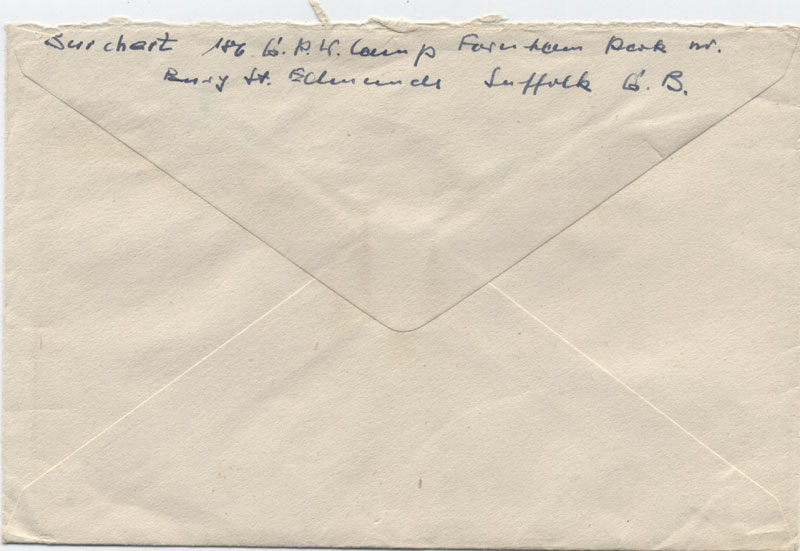 Burchert 186 G.P.W. Camp Fornham Park nr.
Bury St. Edmunds Suffolk G. B.